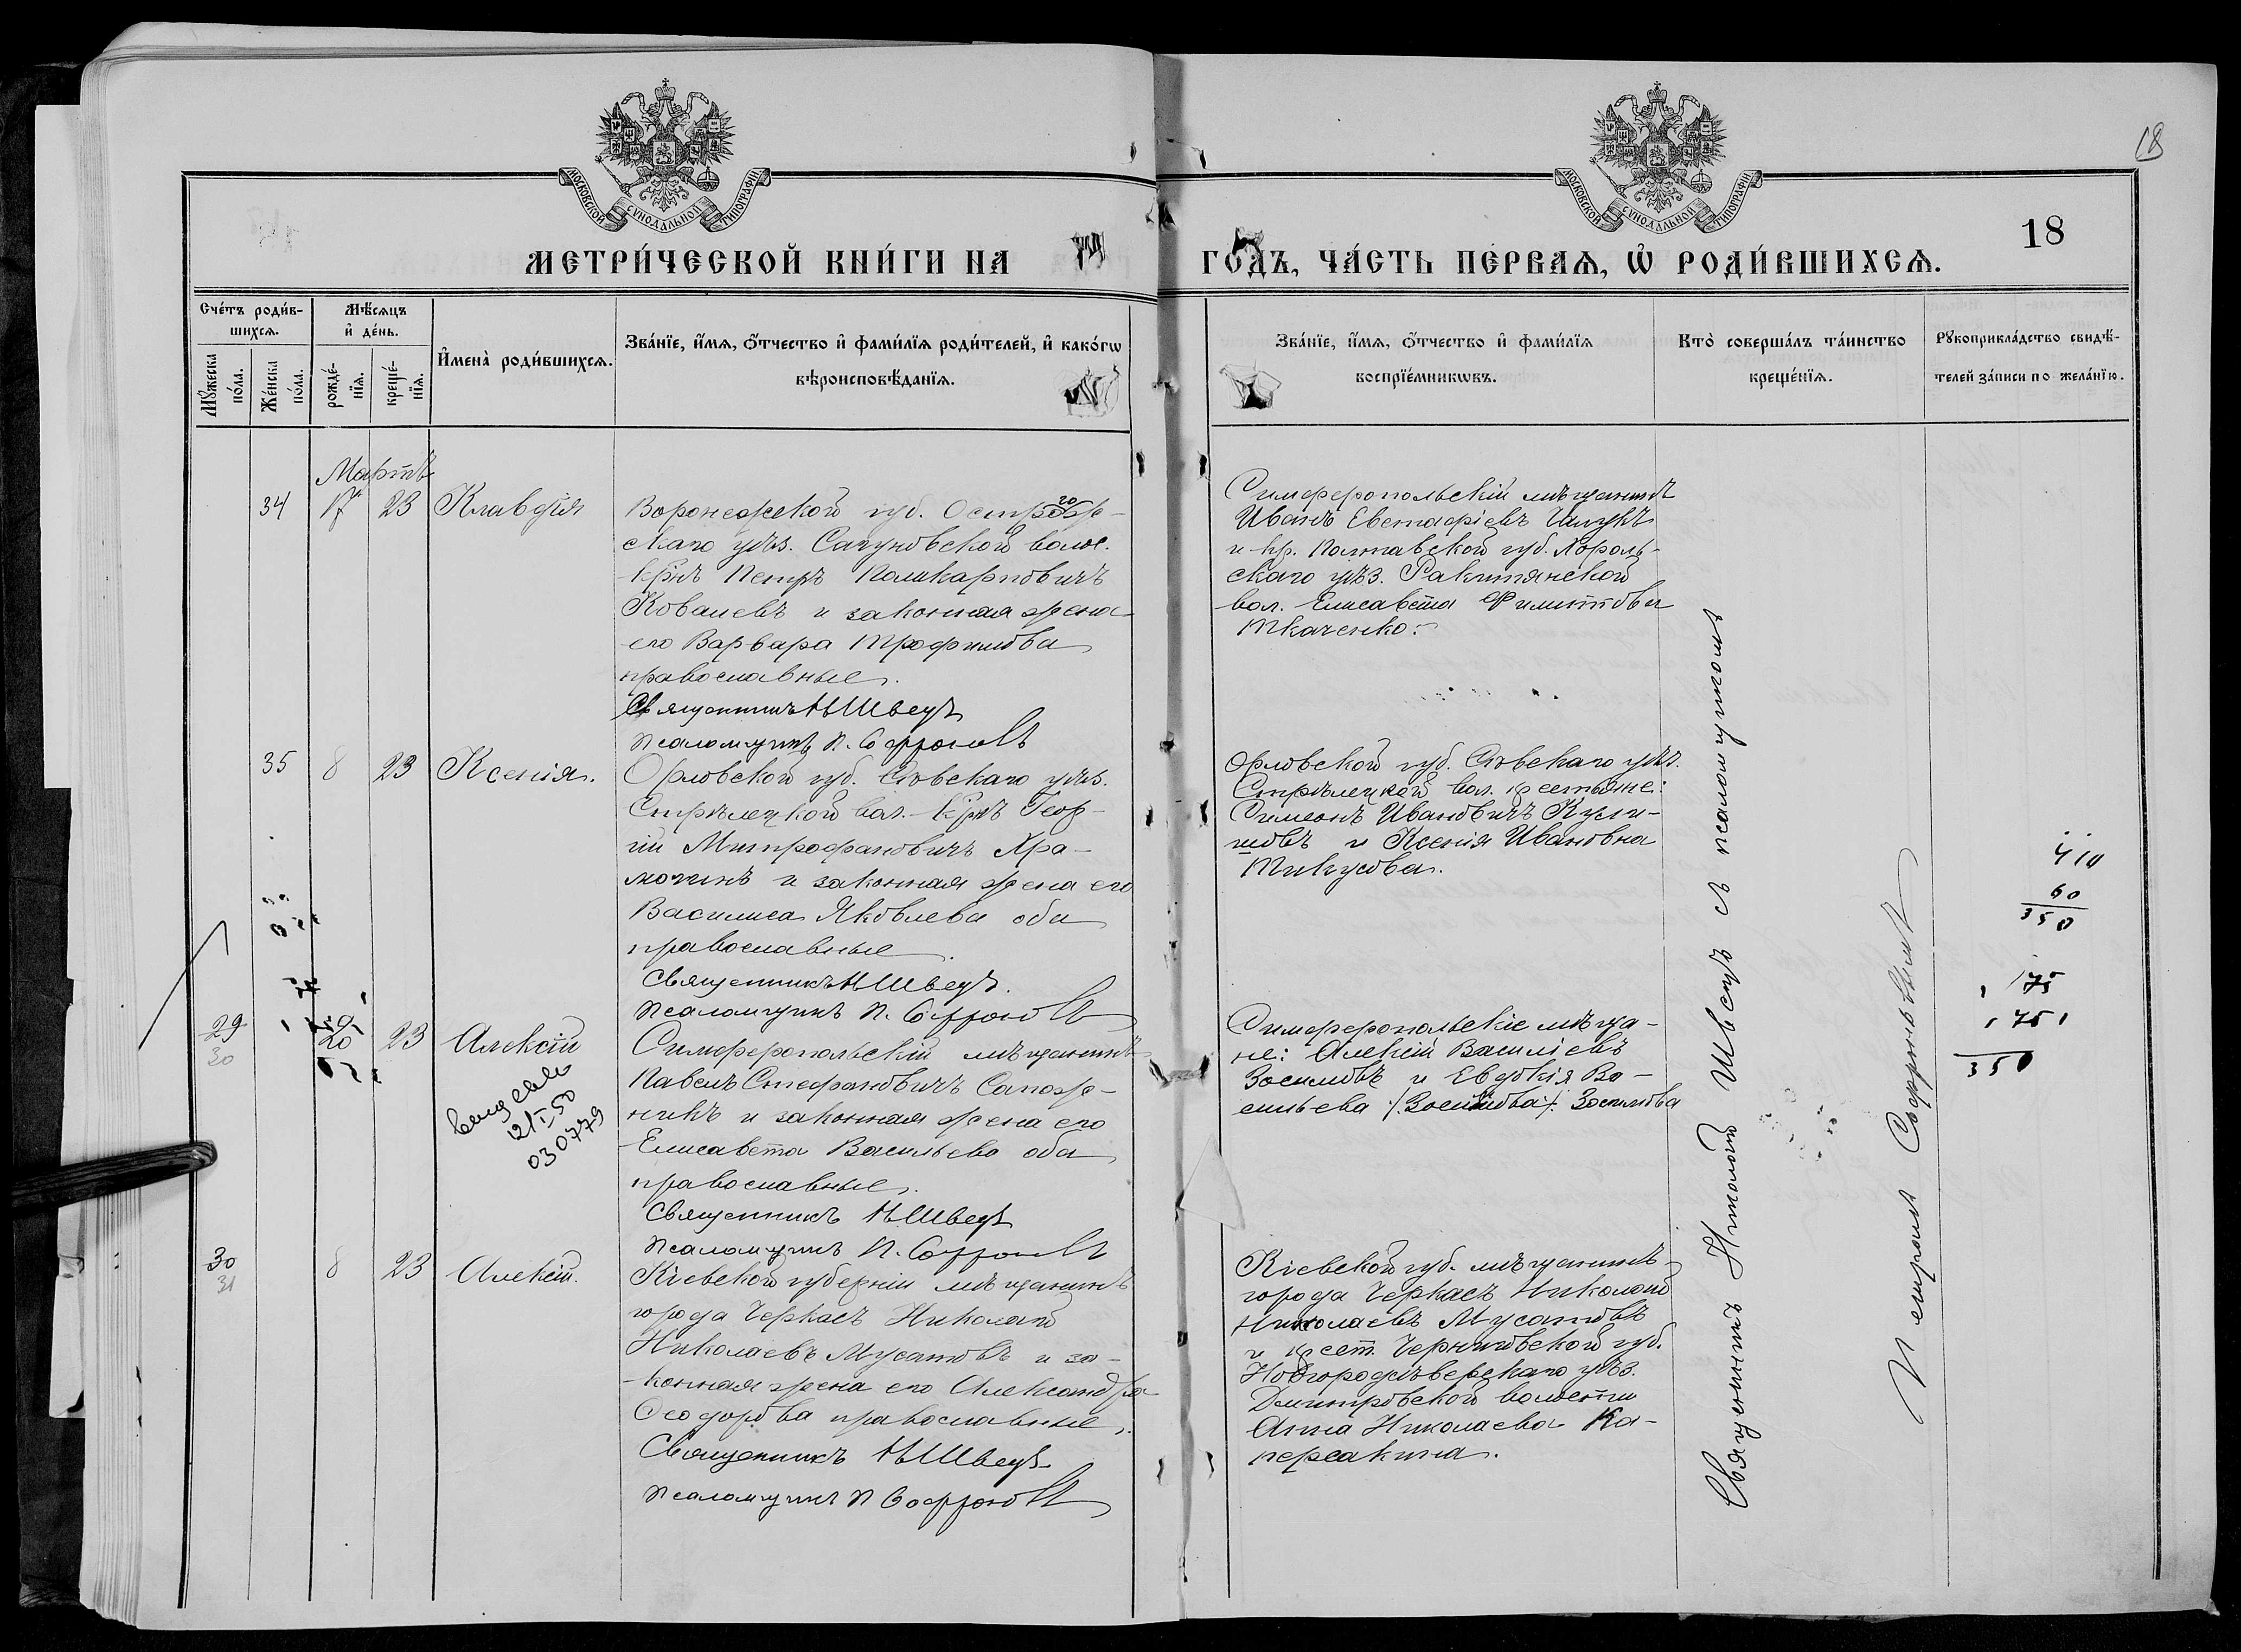 18
МОСКОВСКОЙ СѴНОДАЛЬНОЙ ТИПОГРАФІИ
МОСКОВСКОЙ СѴНОДАЛЬНОЙ ТИПОГРАФІИ
18
МЕТРИ́ЧЕСКОЙ КНИ́ГИ НА
ГО́ДЪ, ЧА́СТЬ ПЕ́РВАЯ, Ѡ҆ РОДИ́ВШИХСЯ.
Сче́тъ роди́в-
шихся.
Мꙋ́жеска по́ла.
Же́нска по́ла.
Мѣ́сяцъ
и҆ де́нь.
рожде́-нїя.
креще́-нїя.
И҆мена̀ роди́вшихся.
Зва́нїе, и҆́мя, о҆́тчество и҆ фами́лїя роди́телей, и҆ како́гѡ
вѣроисповѣ́данїя.
Зва́нїе, и҆́мя, о҆́тчество и҆ фами́лїя
воспрїе́мникѡвъ.
Кто̀ соверша́лъ та́инство
креще́нїя.
Рꙋкоприкла́дство свидѣ́-
телей за́писи по жела́нїю.
Мартъ
34 17 23 Клавдія
Воронежской губ. Острогож-
скаго уѣз. Сагуновской волос.
кр-нъ Петръ Поликарповичъ
Ковалевъ и законная жена
его Варвара Трофимова
православные.
Священникъ Н Швецъ
Псаломщикъ П. Софроновъ
Симферопольскій мѣщанинъ
Иванъ Евстафіевъ
и кр. Полтавской губ. Хороль-
скаго уѣз. Ракитянской
вол. Елисавета Филиппова
Ткаченко:
35 8 23 Ксенія.
Орловской губ. Сѣвскаго уѣз.
Стрѣлецкой вол. кр-нъ Геор-
гій Митрофановичъ Хра-
мочинъ и законная жена его
Василиса Яковлева оба
православные.
Священникъ Н Швецъ.
Псаломщикъ П. Софроновъ
Орловской губ. Сѣвскаго уѣз.
Стрѣлецкой вол. крестьяне:
Симеонъ Ивановичъ Кули-
шовъ и Ксенія Ивановна
410
60
350
175
175
350
29
30
20 23 Алексій
21 I 50
030779
Симферопольскій мѣщанинъ
Павелъ Стефановичъ Сапож-
никъ и законная жена его
Елисавета Васильева оба
православные.
Священникъ Н Швецъ
Псаломщикъ П. Софроновъ
Симферопольскіе мѣща-
не: Алексій Васильевъ
Зосимовъ и Евдокія Ва-
сильева Зосимова
30
31
8 23 Алексій.
Кіевской губерніи мѣщанинъ
города Черкасъ Николай
Николаевъ Мусатовъ и за-
конная жена его Александра
Ѳеодорова православные.
Священникъ Н Швецъ
Псаломщикъ П Софроновъ
Кіевской губ. мѣщанинъ
города Черкасъ Николай
Николаевъ Мусатовъ
и крест. Черниговской губ.
Новгородсѣверскаго уѣз.
Дмитровской волости
Анна Николаева Ка-
персакина.
Священникъ Николай Швецъ съ псаломщикомъ
Петромъ Софроновымъ